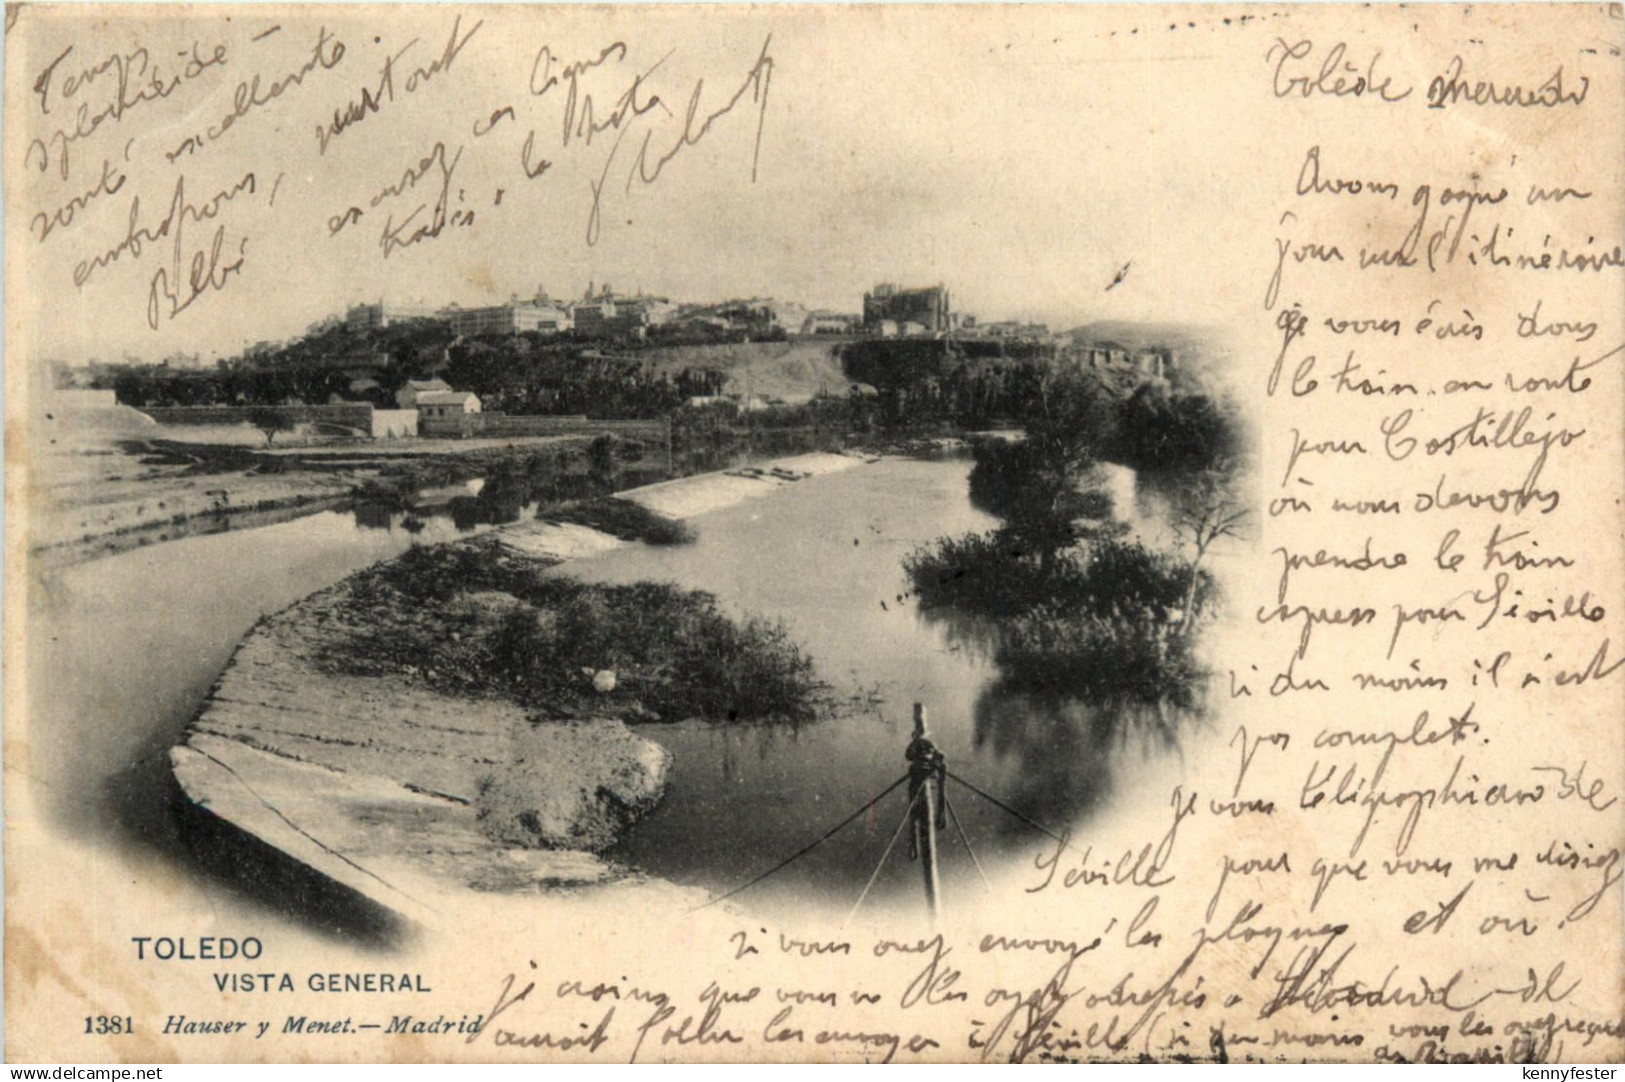 Tolède Mercredi
Avons gagné un
jour sur l'itinéraire
je vous écris dans
le train en route
pour Castillejo
où nous devons
prendre le train
express pour Séville
si du moins il n'est
pas complet.
Je vous télégraphierai de
Séville pour que vous me disiez
si vous avez envoyé les plaques et où.
je crains que vous ne les ayez adressés à
aurait fallu les envoyer à Séville (si du moins vous les avez reçues
de
Temps
splendide -
santé excellente.
embrassons, surtout
Bébé
excusez ces lignes
à la hâte
TOLEDO
VISTA GENERAL
1381 Hauser y Menet.—Madrid
kennyfester